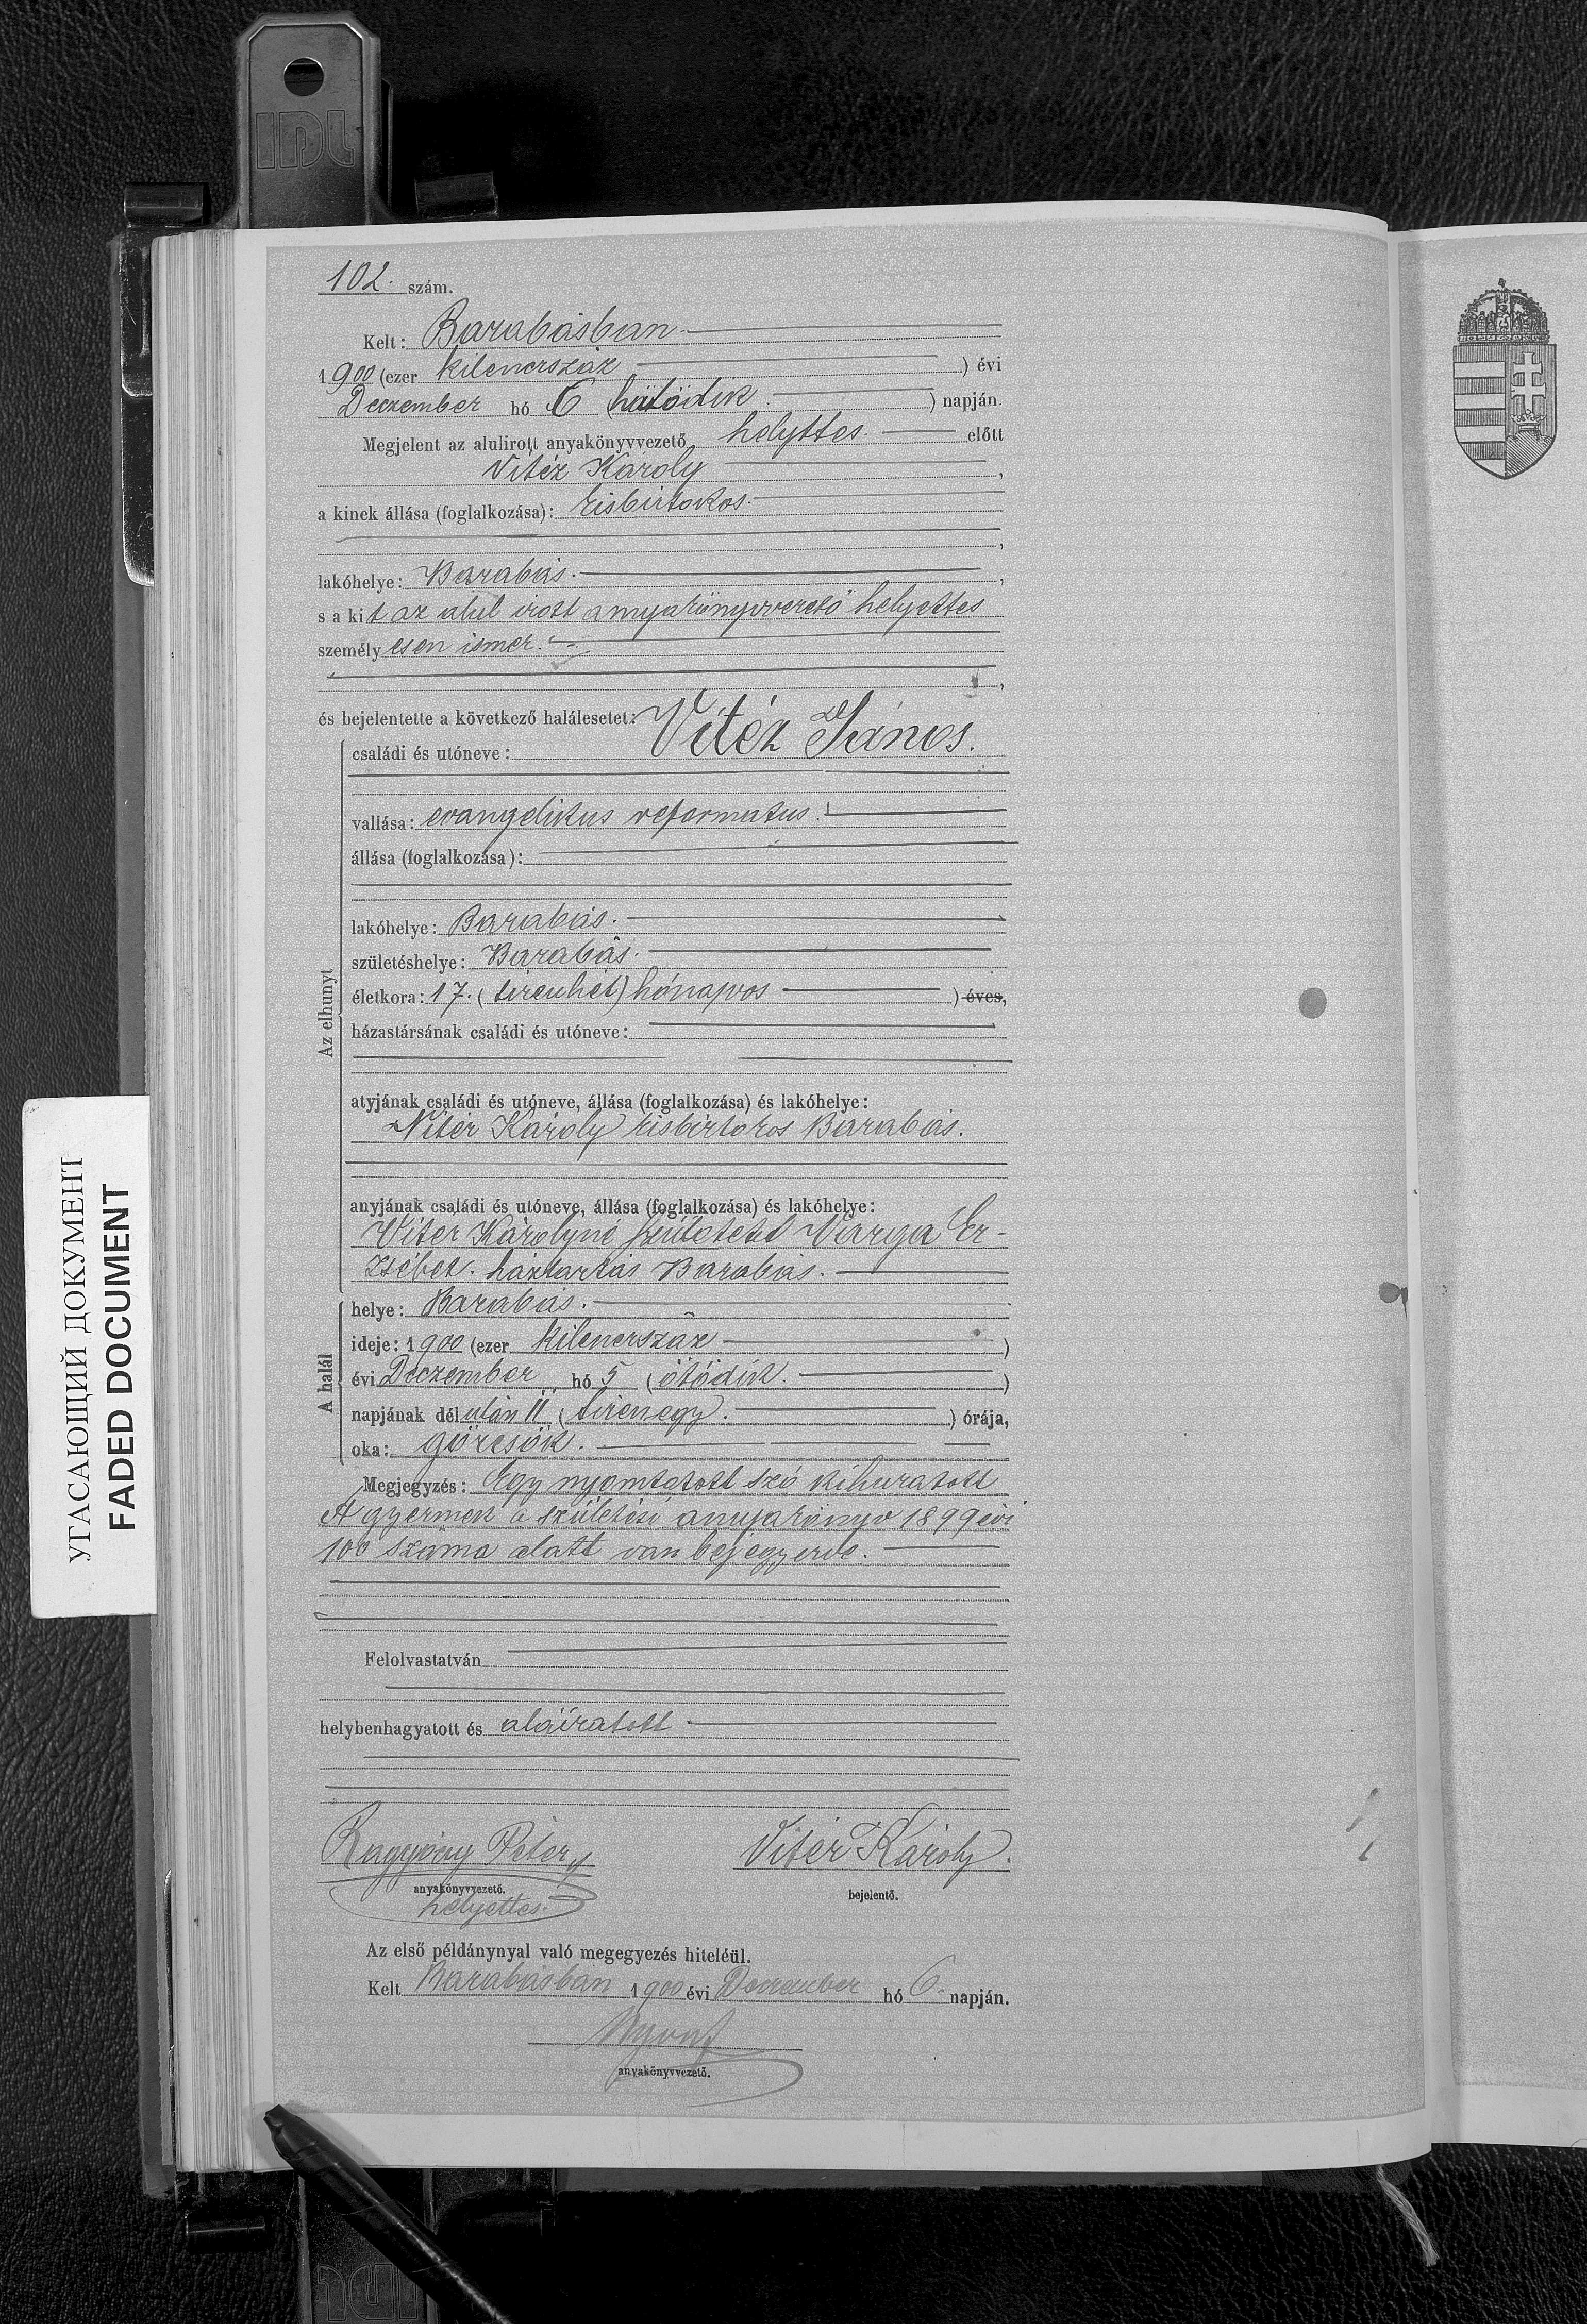 IDL
102. szám.
Kelt: Barabásban
1900 (ezer kilenczszáz ) évi
Deczember hó 6 (hatodik. ) napján.
Megjelent az alulirott anyakönyvvezető helyttes. előtt
Vitéz Károly ,
a kinek állása (foglalkozása): kisbirtokos.
,
lakóhelye: Barabás. ,
s a kit az alul irott anyakönyvvezető helyettes
személyesen ismer.
,
és bejelentette a következő halálesetet:
családi és utóneve: Vitéz János.
Az elhunyt
vallása: evangelikus reformatus.
állása (foglalkozása):
lakóhelye: Barabás.
születéshelye: Barabás.
életkora: 17. (tizenhét) hónapos ) éves,
házastársának családi és utóneve:
atyjának családi és utóneve, állása (foglalkozása) és lakóhelye:
Vitéz Károly kisbirtokos Barabás.
anyjának családi és utóneve, állása (foglalkozása) és lakóhelye:
Vitéz Károlyné született Varga Er-
zsébet. háztartás Barabás.
A halál
helye: Barabás.
ideje: 1900 (ezer kilenczszáz )
évi Deczember hó 5 (ötödik. )
napjának délután 11 (tizenegy. ) órája,
oka: görcsök.
Megjegyzés: Egy nyomtatott szó kihuzatott
A gyermek a születési anyakönyv 1899 évi
100 száma alatt van bejegyezve.
Felolvastatván
helybenhagyatott és aláiratott
Péter Vitéz Károly.
anyakönyvvezető. bejelentő.
helyettes.
Az első példánynyal való megegyezés hiteléül.
Kelt Barabásban 1900 évi December hó 6. napján.
anyakönyvvezető.
УГАСАЮЩИЙ ДОКУМЕНТ
FADED DOCUMENT